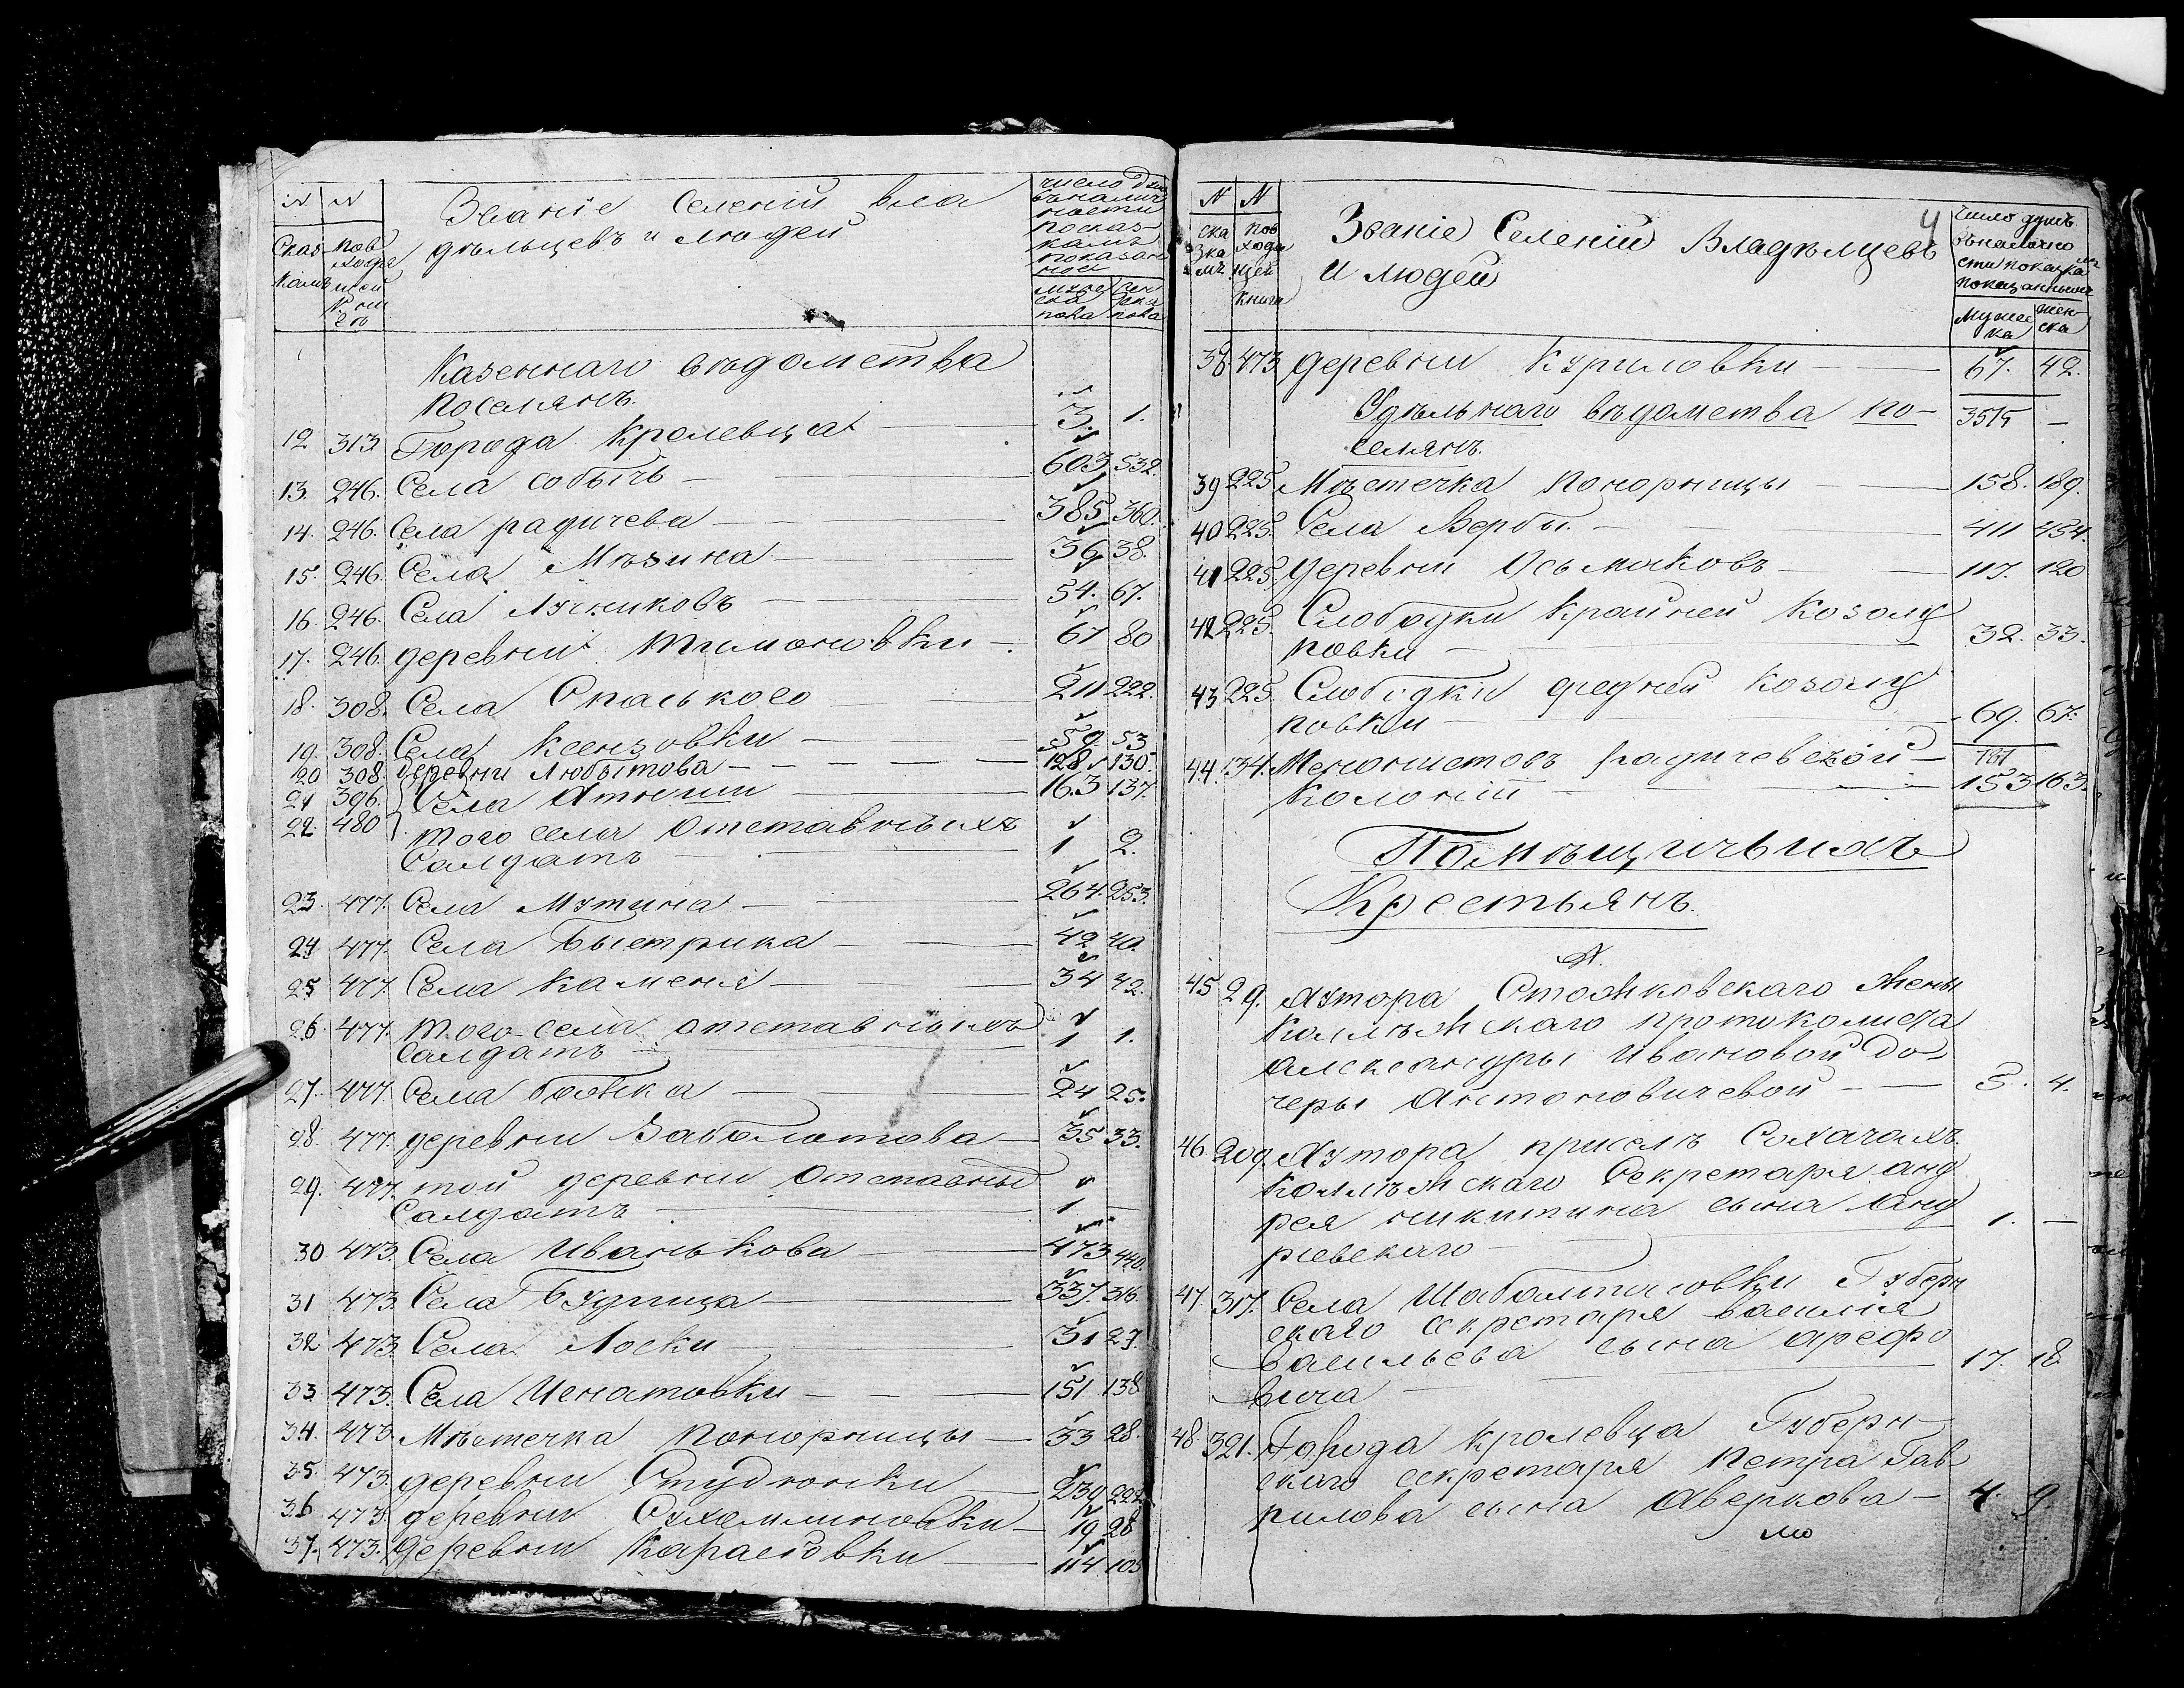 N N
Сказ
камъ
пов
ходя
щей
книг
гъ
Званіе Селеній вла
дѣльцевъ и людей
число душ
въналич
ности
посказ
камъ
показан
ное
мужес
ска
пола
жен
ска
пола
Казеннаго вѣдомства
поселянъ.
12 313 Города Кролевца 3. 1.
13. 246. Села Собычь 603 532.
14. 246. Села радичева 385 360.
15. 246. Села Мѣзина 36 38.
16. 246. Села Лучниковъ 54. 67.
17. 246. деревни Тимоновки 67 80
18. 308. Села Спаського 211 222.
19. 308. Села Ксензовки 59. 53
20 308. деревни Любитова 128 130.
21 396. Села Атюши 163 137.
22. 480 того села отставныхъ
Салдатъ 1 2.
23. 477. Села Мутина 264. 253.
24 477. Села Быстрика 42 40.
25 477. Села Каменя 34 42.
26. 477. того села отставныхъ
Салдатъ 1 1.
27. 477. Села божка 24 25.
28. 477. деревни Заболотова 35 33.
29. 477. той деревни Отставныхъ
Салдатъ 1 —
30 473. Села Иванькова 473 440.
31 473. Села Будища 337. 316.
32 473. Села Лоски 31 27.
33. 473. Села Игнатовки 151 138
34. 473. Мѣстечка Понорницы 33 28.
35. 473. деревни Студюнки 230 222
36. 473. деревни Сухомлиновки 19 28
37. 473. деревни Карасовки 114 105
4
N N
ска
зка
мъ
пов
ходя
щей
книги
Званіе Селеній Владѣлцевъ
и людей
число душъ
въналично
сти посказка
мъ
показанныхъ
Мужес
ка
жен-
ска
38. 473 деревни Куриловки 67. 42.
Удѣльнаго вѣдомства по- 3515 —
селянъ.
39 225. Мѣстечка Понорницы 158. 189.
40 225. Села Вербы. 411 454.
41 225. деревни Осьмаковъ 117. 120
42 225. Слободки Крайней Козолу
повки 32. 33.
43 225. Слободки средней Козолу
повки 69. 67.
787
44. 134. Менонистовъ радичевской
Колоніи 153 163.
Помѣщичьихъ
Крестьянъ.
А.
45 29. Хутора Стожковскаго Жены
Коллѣжскаго протоколиста
александры Ивановой до-
чери Антоновичевой 3. 4.
46. 209. Хутора приселѣ Сохачахъ
Коллѣжскаго Секретаря анд
рея никитина сына Анд
ріевскаго 1. —
47. 317. Села Шабалтасовки Губерн
скаго секретаря василія
Васильева сына арефо
вича 17. 18
48. 321. Города кролевца Губерн-
скаго секретаря Петра Гав-
рилова сына Аверкова 4. 9.